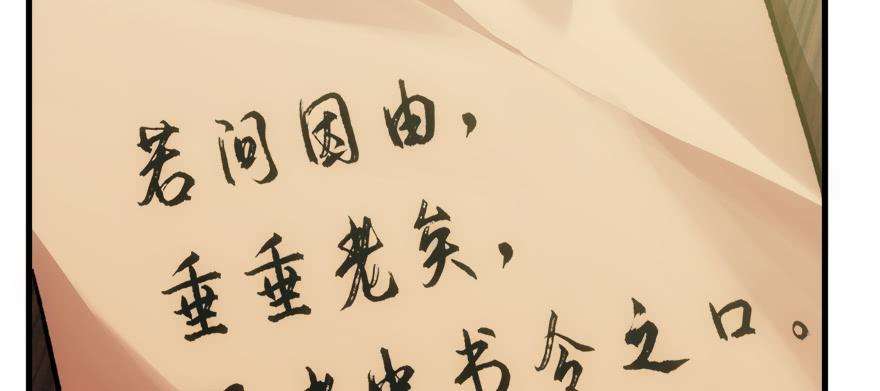 若问因由，
垂垂老矣，
中书令之口。